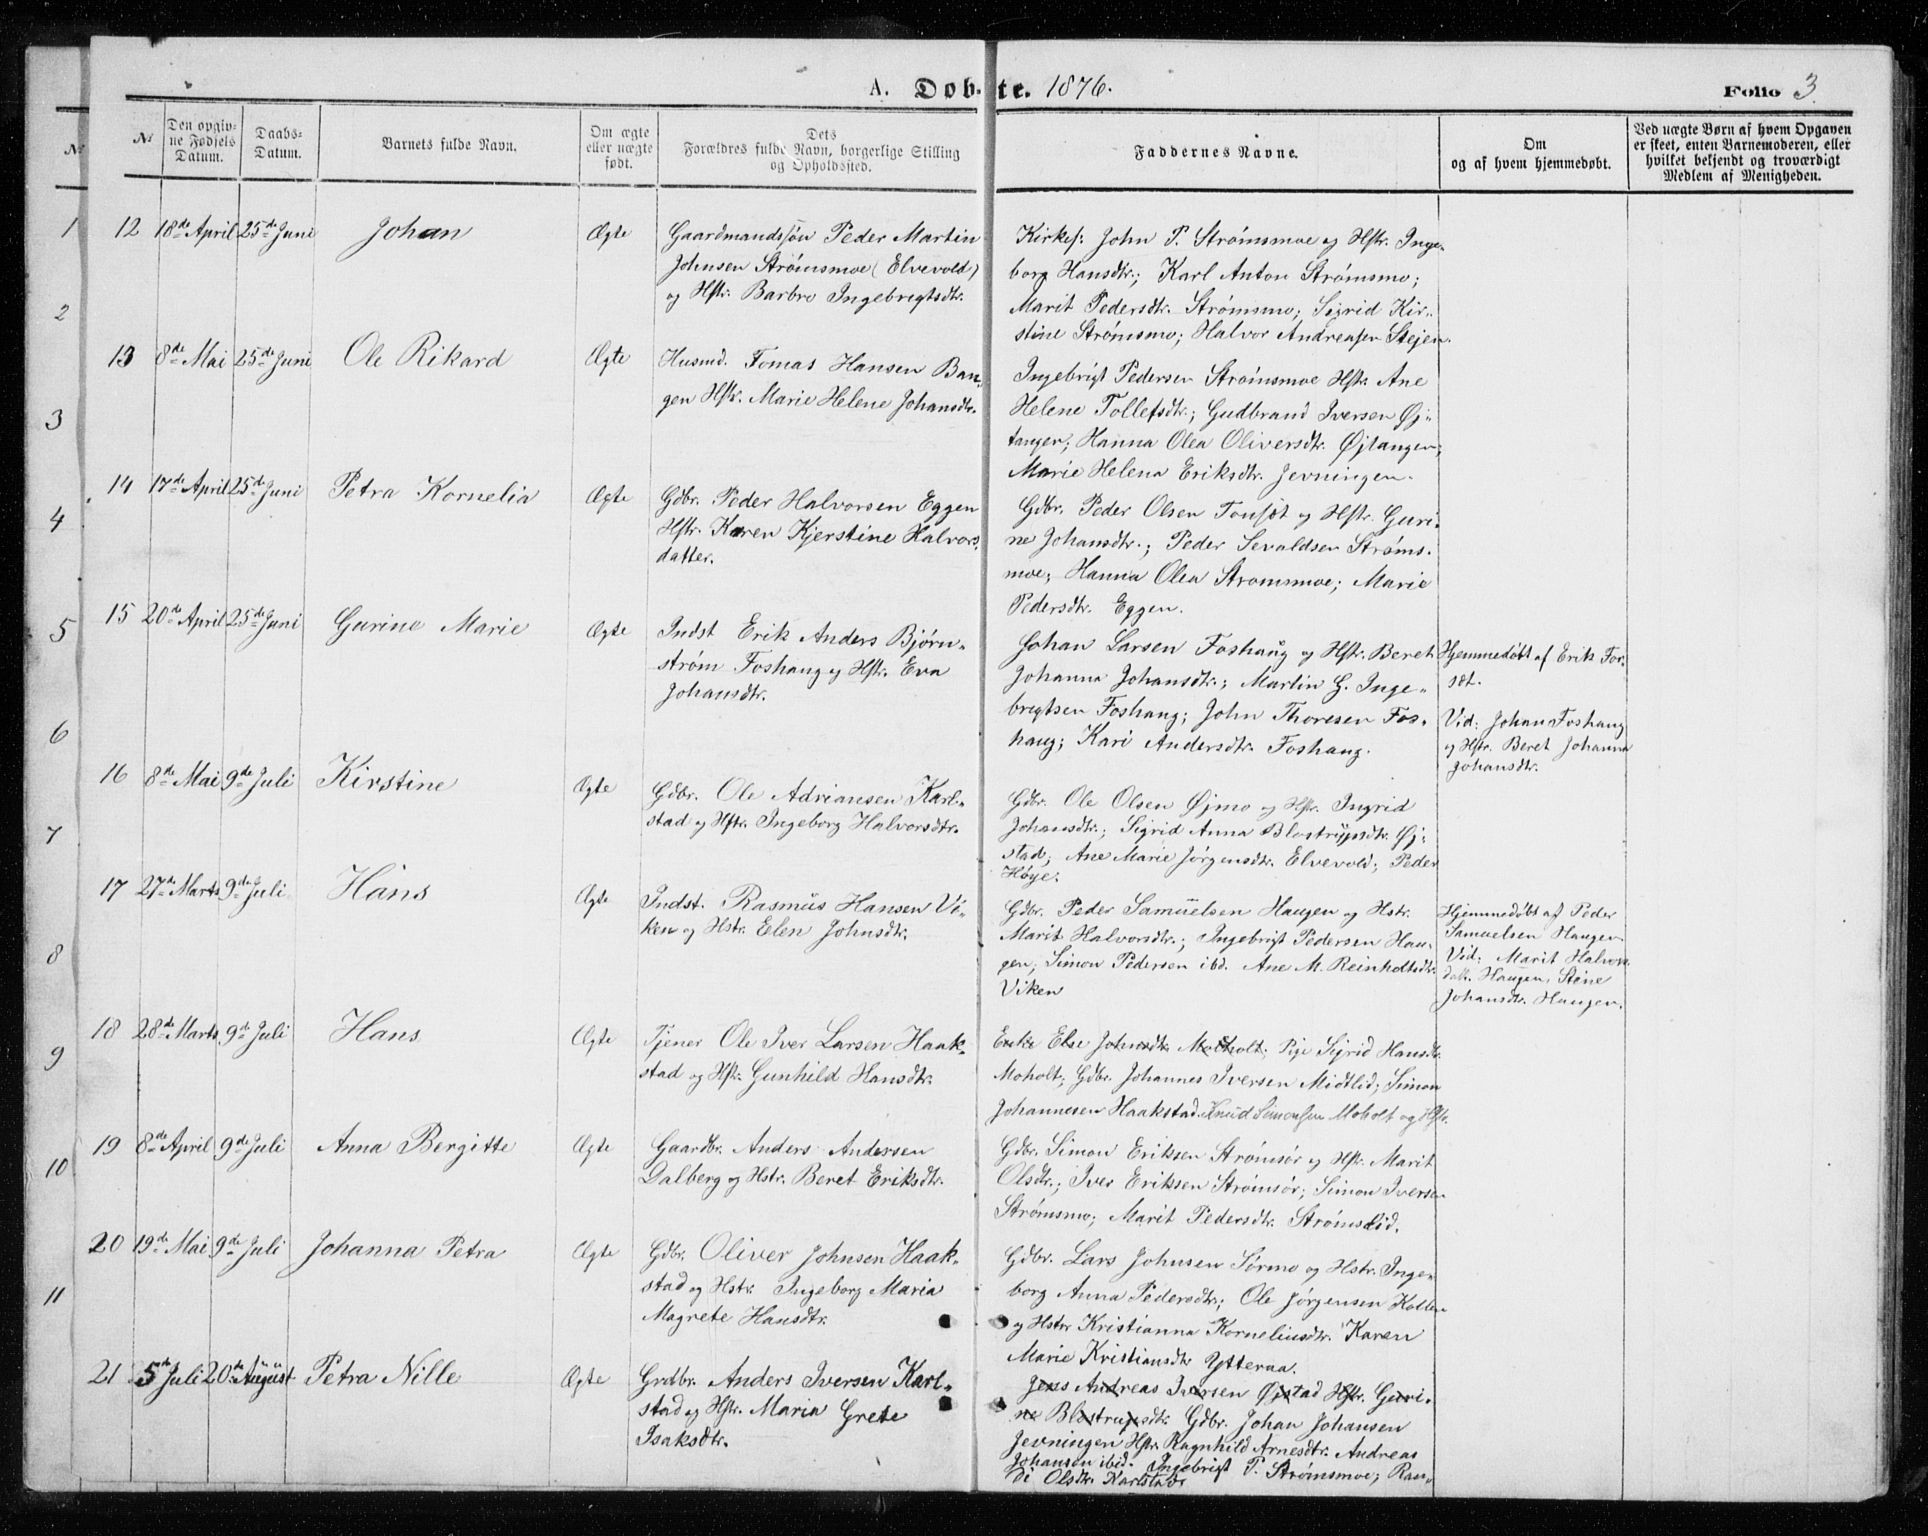 A. Døbte. 1876.
Folio 3
№
№
Den opgiv-
ne Fødsels
Datum.
Daabs-
Datum.
Barnets fulde Navn.
Om ægte
eller uægte
født.
Dets
Forældres fulde Navn, borgerlige Stilling
og Opholdssted.
Faddernes Navne.
Om
og af hvem hjemmedøbt.
Ved uægte Børn af hvem Opgaven
er skeet, enten Barnemoderen, eller
hvilket bekjendt og troværdigt
Medlem af Menigheden.
1
2
3
4
5
6
7
8
9
10
11
12 18de April 25de Juni Johan Ægte
Gaardmandssøn Peder Martin
Johnsen Strømsmoe (Elvevold)
og Hstr. Barbro Ingebrigtsdtr.
Kirkes: John P. Strømsmoe og Hstr. Inge-
borg Hansdtr.; Karl Anton Strømsmo;
Marit Pedersdtr. Strømsmo; Sigrid Kir-
stine Strømsmo; Halvor Andreasen Stejen.
13 8de Mai 25de Juni Ole Rikard Ægte
Husmd. Tomas Hansen Ban-
gen Hstr. Marie Helene Johansdtr.
Ingebrigt Pedersen Strømsmoe Hstr. Ane
Helene Tollefsdtr.; Gudbrand Iversen Øj-
tangen; Hanna Olea Oliversdtr. Øjtangen;
Marie Helena Eriksdtr. Jevningen.
14 17de April 25de Juni Petra Kornelia Ægte
Gdbr. Peder Halvorsen Eggen
Hstr. Karen Kjerstine Halvors-
datter.
Gdbr. Peder Olsen Fousøt og Hstr. Guri-
ne Johansdtr.; Peder Sevaldsen Strøms-
moe; Hanna Olea Strømsmoe; Marie
Pedersdtr. Eggen.
15 20de April 25de Juni Gurine Marie Ægte
Indst Erik Anders Bjørn-
strøm Foshaug og Hstr. Eva
Johansdtr.
Johan Larsen Foshaug og Hstr. Beret
Johanna Johansdtr.; Martin G. Inge-
brigtsen Foshaug; John Thoresen Fos-
haug; Kari Andersdtr. Foshaug.
Hjemmedøbt af Erik For-
sæt.
Vid: Johan Foshaug
og Hstr. Beret Johanna
Johansdtr.
16 8de Mai 9de Juli Kirstine Ægte
Gdbr. Ole Adriansen Karl-
stad og Hstr. Ingeborg Halvorsdtr.
Gdbr. Ole Olsen Øjmo og Hstr. Ingrid
Johansdtr.; Sigrid Anna Blostrupsdtr. Øj-
stad; Ane Marie Jørgensdtr. Elvevold; Peder
Høye.
17 27de Marts 9de Juli Hans Ægte
Indst. Rasmus Hansen Vi-
ken og Hstr. Elen Johnsdtr.
Gdbr. Peder Samuelsen Haugen og Hstr.
Marit Halvorsdtr.; Ingebrigt Pedersen Hau-
gen; Simon Pedersen ibd. Ane M. Reinholtsdtr.
Viken
Hjemmedøbt af Peder
Samuelsen Haugen
Vid: Marit Halvors
datt. Haugen, Stine
Johansdtr. Haugen.
18 28de Marts 9de Juli Hans Ægte
Tjener Ole Iver Larsen Haak-
stad og Hstr. Gunhild Hansdtr.
Enke Else Johnsdtr. Moholt; Pige Sigrid Hansdtr.
Moholt; Gdbr. Johannes Iversen Midtlid; Simon
Johannesen Haakstad. Knud Simonsen Moholt og Hstr.
19 8de April 9de Juli Anna Bergitte Ægte
Gaardbr. Anders Andersen
Dalberg og Hstr. Beret Eriksdtr.
Gdbr. Simon Eriksen Strømsør og Hstr. Marit
Olsdtr.; Iver Eriksen Strømsør; Simon Iversen
Strømsmo; Marit Pedersdtr. Strømslid.
20 19de Mai 9de Juli Johanna Petra Ægte
Gdbr. Oliver Johnsen Haak-
stad og Hstr. Ingeborg Maria
Magrete Hansdtr.
Gdbr. Lars Johnsen Sørmo og Hstr. Inge-
borg Anna Pedersdtr; Ole Jørgensen Kollen
og Hstr Kristianna Korneliusdtr. Karen
Marie Kristiansdtr Ytteraa.
21 5de Juli 20de August Petra Nille Ægte
Grdbr. Anders Iversen Karl-
stad og Hstr. Maria Grete
Isaksdtr.
Jens Andreas Iversen Øjstad Hstr. Guri-
ne Blostrupsdtr. Gdbr. Johan Johansen
Jevningen Hstr. Ragnhild Arnesdtr. Andreas
Johansen ibid. Ingebrigt P. Strømsmoe; Ran-
di Olsdtr. Karlstad.